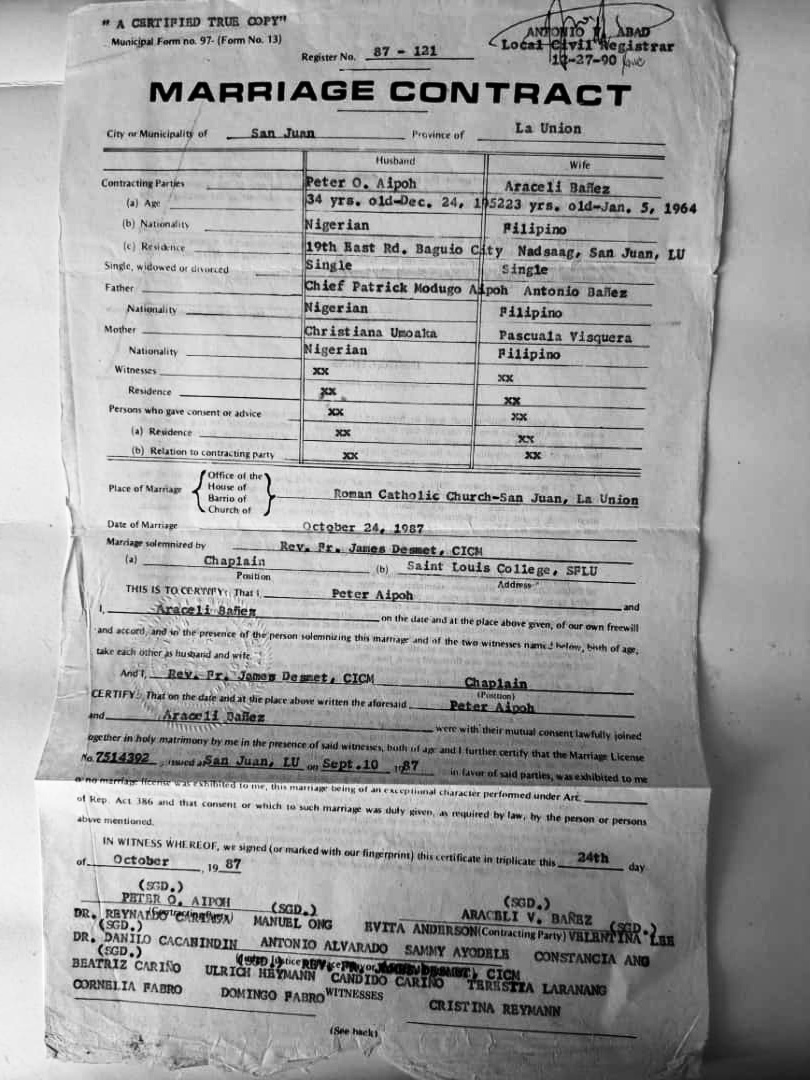 " A CERTIFIED TRUE COPY"
Municipal Form no. 97- (Form No. 13)
ANTONIO ABAD
Local Civil Registrar
12-27-90
Register No. 87 - 121
MARRIAGE CONTRACT
City or Municipality of San Juan Province of La Union
Husband Wife
Contracting Parties Peter O. Aipoh Araceli Bañez
(a) Age 34 yrs. old-Dec. 24, 195223 yrs. old-Jan. 5, 1964
(b) Nationality Nigerian Filipino
(c) Residence 19th East Rd. Baguio City Nadsaag, San Juan, LU
Single, widowed or divorced Single Single
Father Chief Patrick Modugo Aipoh Antonio Bañez
Nationality Nigerian Filipino
Mother Christiana Umoaka Pascuala Visquera
Nationality Nigerian Filipino
Witnesses xx xx
Residence xx xx
Persons who gave consent or advice xx xx
(a) Residence xx xx
(b) Relation to contracting party xx xx
Place of Marriage { Office of the House of Barrio of Church of } Roman Catholic Church-San Juan, La Union
Date of Marriage October 24, 1987
Marriage solemnized by Rev. Fr. James Desmet, CICM
(a) Chaplain (b) Saint Louis College, SFLU
Position Address
THIS IS TO CERTIFY: That I, Peter Aipoh and
I, Araceli Bañez on the date and at the place above given, of our own freewill
and accord, and in the presence of the person solemnizing this marriage and of the two witnesses named below, both of age,
take each other as husband and wife.
And I, Rev. Fr. James Desmet, CICM Chaplain
(Position)
CERTIFY: That on the date and at the place above written the aforesaid Peter Aipoh
and Araceli Bañez were with their mutual consent lawfully joined
ogether in holy matrimony by me in the presence of said witnesses, both of age and I further certify that the Marriage License
No. 7514392 issued at San Juan, LU on Sept.10 1987 in favor of said parties, was exhibited to me
o no marriage license was exhibited to me, this marriage being of an exceptional character performed under Art.
of Rep. Act 386 and that consent or which to such marriage was duly given, as required by law, by the person or persons
above mentioned.
IN WITNESS WHEREOF, we signed (or marked with our fingerprint) this certificate in triplicate this 24th day
of October , 19 87
(SGD.) (SGD.)
PETER O. AIPOH (SGD.) ARACELI V. BAÑEZ (SGD.)
DR. REYNALDO MANUEL ONG EVITA ANDERSON (Contracting Party) VALENTINA LEE
(SGD.)
DR. DANILO CACANINDIN ANTONIO ALVARADO SAMMY AYODELE CONSTANCIA ANG
(SGD.) (SGD.) CICM
BEATRIZ CARIÑO ULRICH HEYMANN CANDIDO CARIÑO TERESTIA LARANANG
CORNELIA FABRO DOMINGO FABRO WITNESSES CRISTINA REYMANN
(See back)